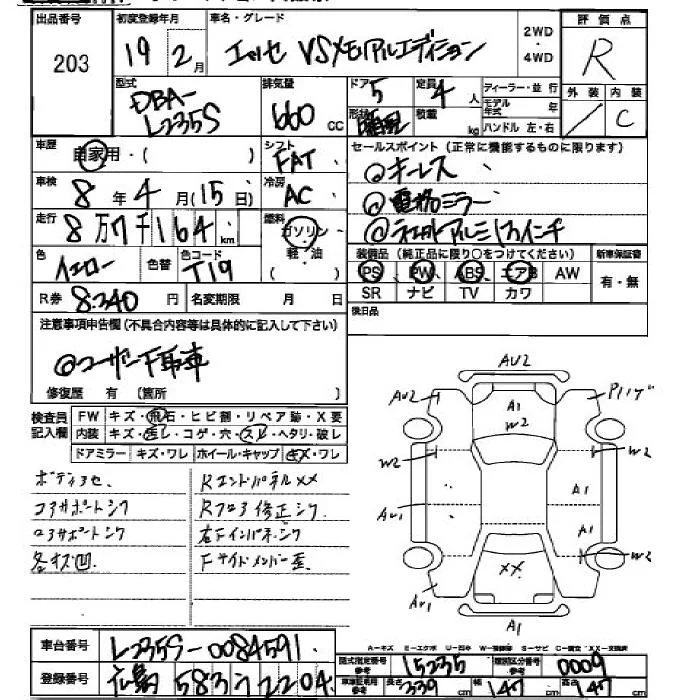 出品番号 203
初度登録年月 19 2月
車名・グレード エッセ VSメモリアルエディション
2WD・4WD
評価点 R
外装 / 内装 C
型式 DBA-L235S
排気量 660 cc
ドア 5
形状
定員 4人
積載 kg
ディーラー・並行
モデル年式 年
ハンドル 左・右
車歴 自家用・( )
シフト FAT
セールスポイント(正常に機能するものに限ります)
@キーレス
@電格ミラー
アルミ13インチ
車検 8年4月(15日)
冷房 AC
走行 8万7千164km
燃料 ガソリン・軽・油
色 イエロー
色替
色コード T19
装備品 (純正品に限り○をつけてください)
PS PW ABS エアB AW
SR ナビ TV カワ
新車保証書 有・無
R券 8,240円
名変期限 月 日
後日品
注意事項申告欄(不具合内容等は具体的に記入して下さい)
@ユーザー下取車
修復歴 有 〔箇所 〕
検査員記入欄
FW キズ・飛石・ヒビ割・リペア跡・X要
内装 キズ・汚レ・コゲ・穴・スレ・ヘタリ・破レ
ドアミラー キズ・ワレ ホイール・キャップ キズ・ワレ
ボディイセ、 RエンドパネルXX
コアサポートシワ Rフロア修正シワ
コアサポートシワ 右Fインパネシワ
各キズ凹 Fサイドメンバー歪
AU2
AU2 A1 W2
W2 W2
AU1 A1
A1
XX W2
AU1
A1
A=キズ E=エクボ U=凹キ W=補修跡 S=サビ C=腐食 XX=交換済
車台番号 L235S-0084591
登録番号 広島 583 ? 2204
型式指定番号 参考 15235
類別区分番号 参考 0009
車検証用 参考 長さ 339cm 幅 147cm 高さ 147cm